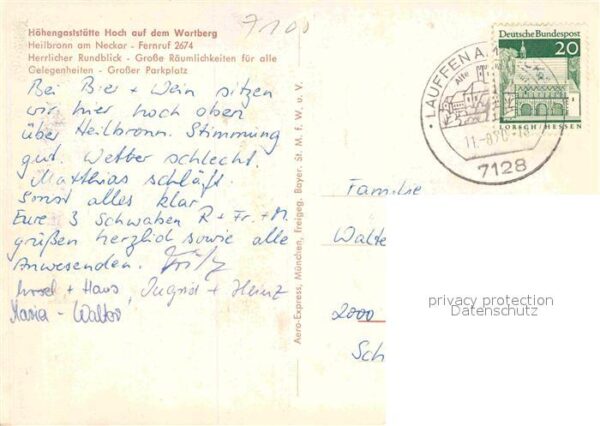 7100
Höhengaststätte Hoch auf dem Wartberg
Heilbronn am Neckar - Fernruf 2674
Herrlicher Rundblick - Große Räumlichkeiten für alle
Gelegenheiten - Großer Parkplatz
Bei Bier + Wein sitzen
wir hier hoch oben
über Heilbronn. Stimmung
gut. Wetter schlecht.
Matthias schläft.
Sonst alles klar
Eure 3 Schwaben R + Fr. + M
grüßen herzlich sowie alle
Anwesenden. Fritz
+ Hans, Ingrid + Heinz
Maria - Walter
Aero-Express, München, Freigeg. Bayer. St. M. f. W. u. V.
Deutsche Bundespost
20
LORSCH/HESSEN
LAUFFEN A.
Alte
11.-8.70
7128
Familie
Walte
2000
Sch
privacy protection
Datenschutz